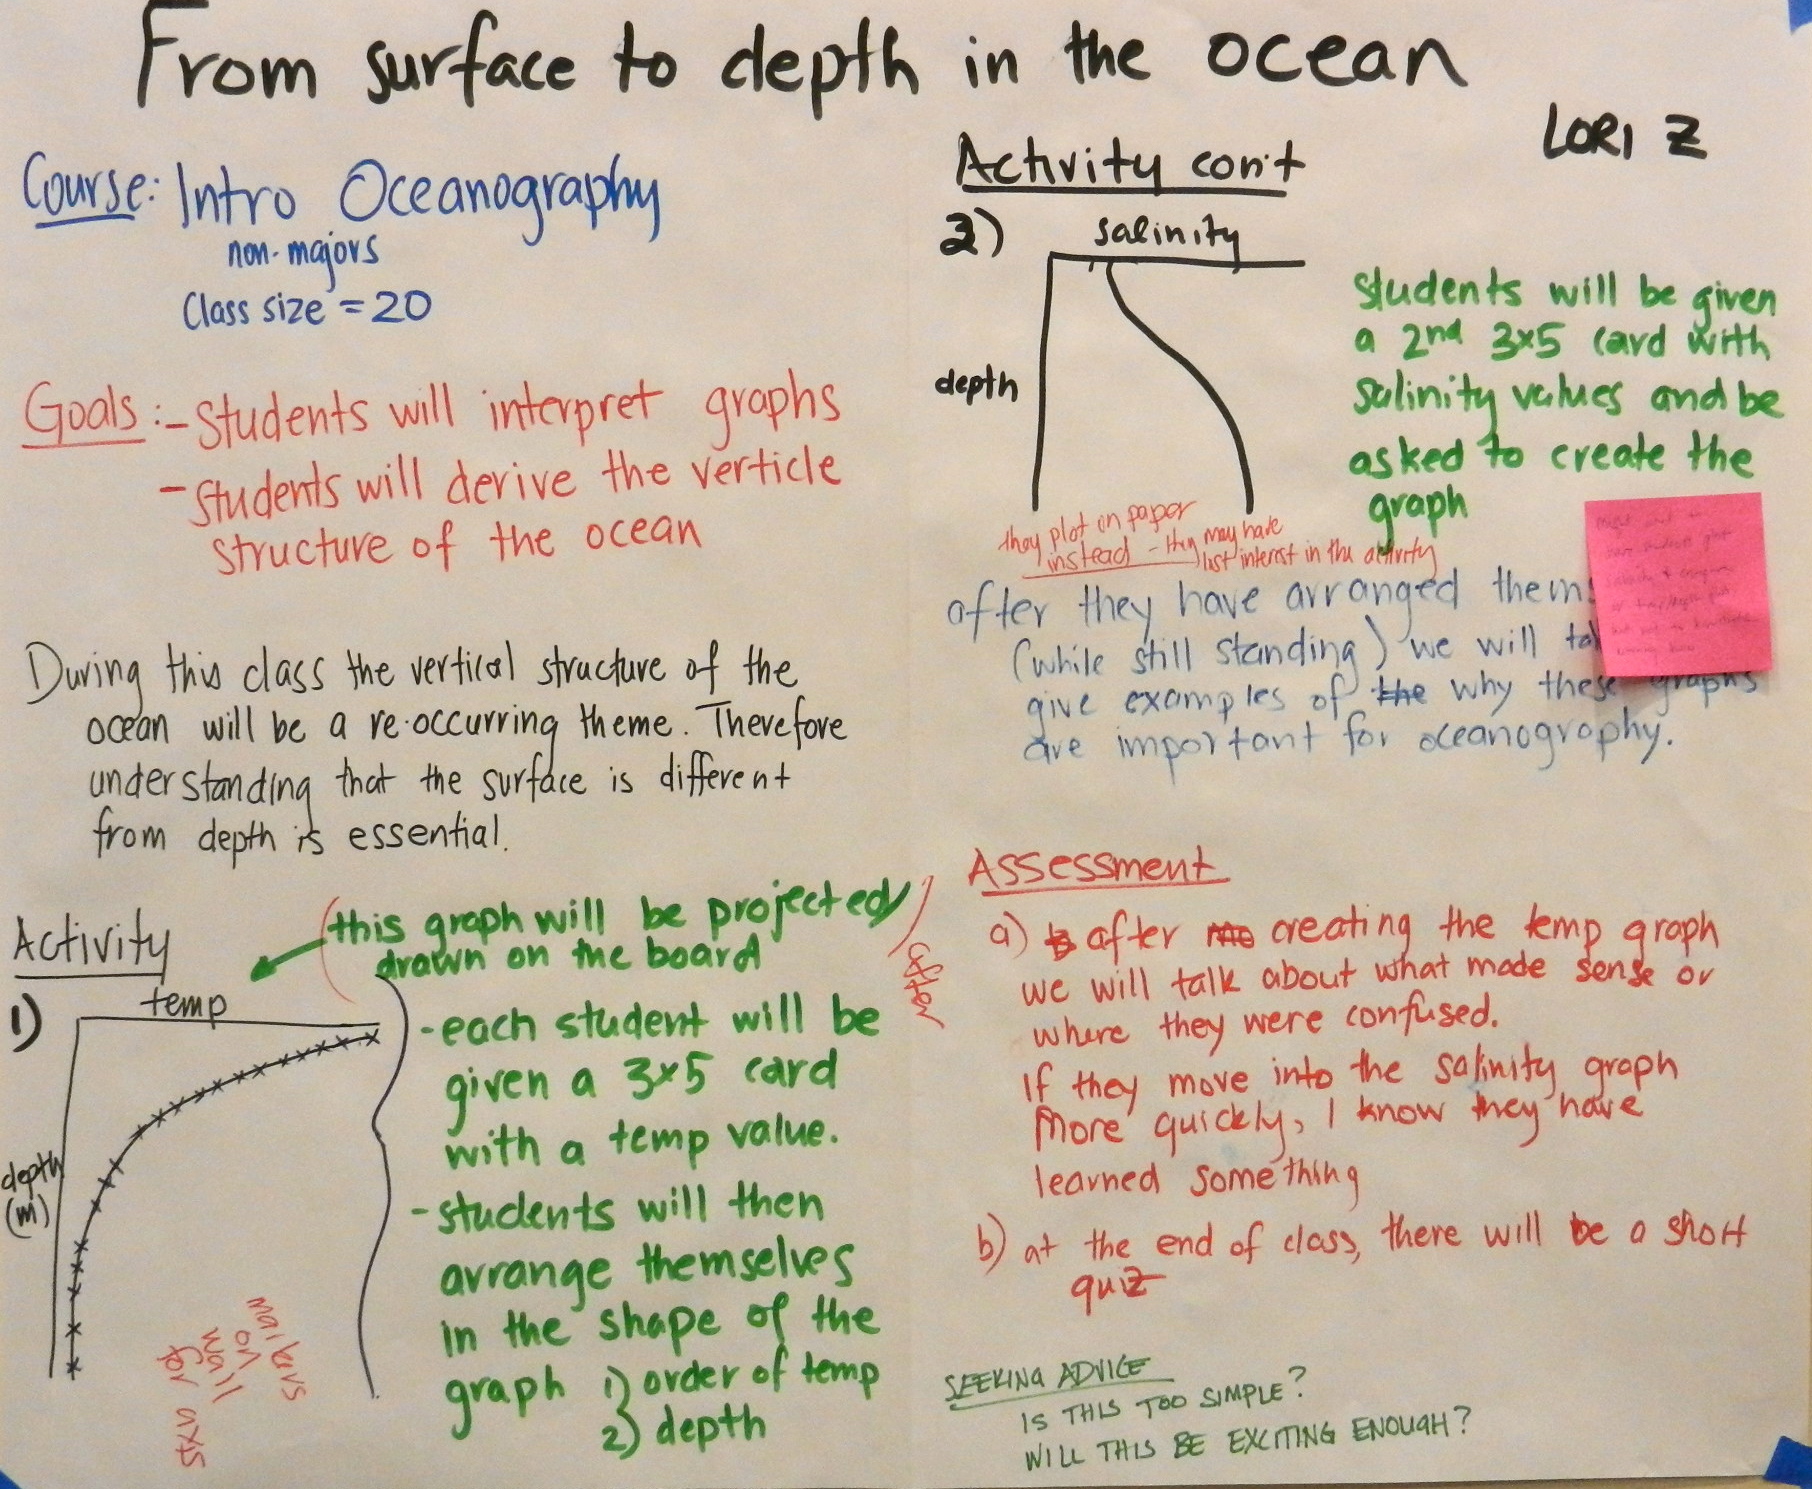 From surface to depth in the ocean
LORI Z
Course: Intro Oceanography
non-majors
Class size = 20
Goals: - Students will interpret graphs
- Students will derive the verticle
structure of the ocean
During this class the vertical structure of the
ocean will be a re-occurring theme. Therefore
understanding that the surface is different
from depth is essential.
Activity
this graph will be projected/
drawn on the board
after
1)
temp
depth
(m)
markers
on
wall
for
axis
- each student will be
given a 3x5 card
with a temp value.
- students will then
arrange themselves
in the shape of the
graph 1) order of temp
2) depth
Activity con't
2)
salinity
depth
Students will be given
a 2nd 3x5 card with
salinity values and be
asked to create the
graph
they plot on paper
instead - they may have
lost interest in the activity
after they have arranged
(while still standing) we will
give examples of the why these graphs
are important for oceanography.
Assessment
a) after creating the temp graph
we will talk about what made sense or
where they were confused.
If they move into the salinity graph
more quickly, I know they have
learned something
b) at the end of class, there will be a short
quiz
SEEKING ADVICE
IS THIS TOO SIMPLE?
WILL THIS BE EXCITING ENOUGH?